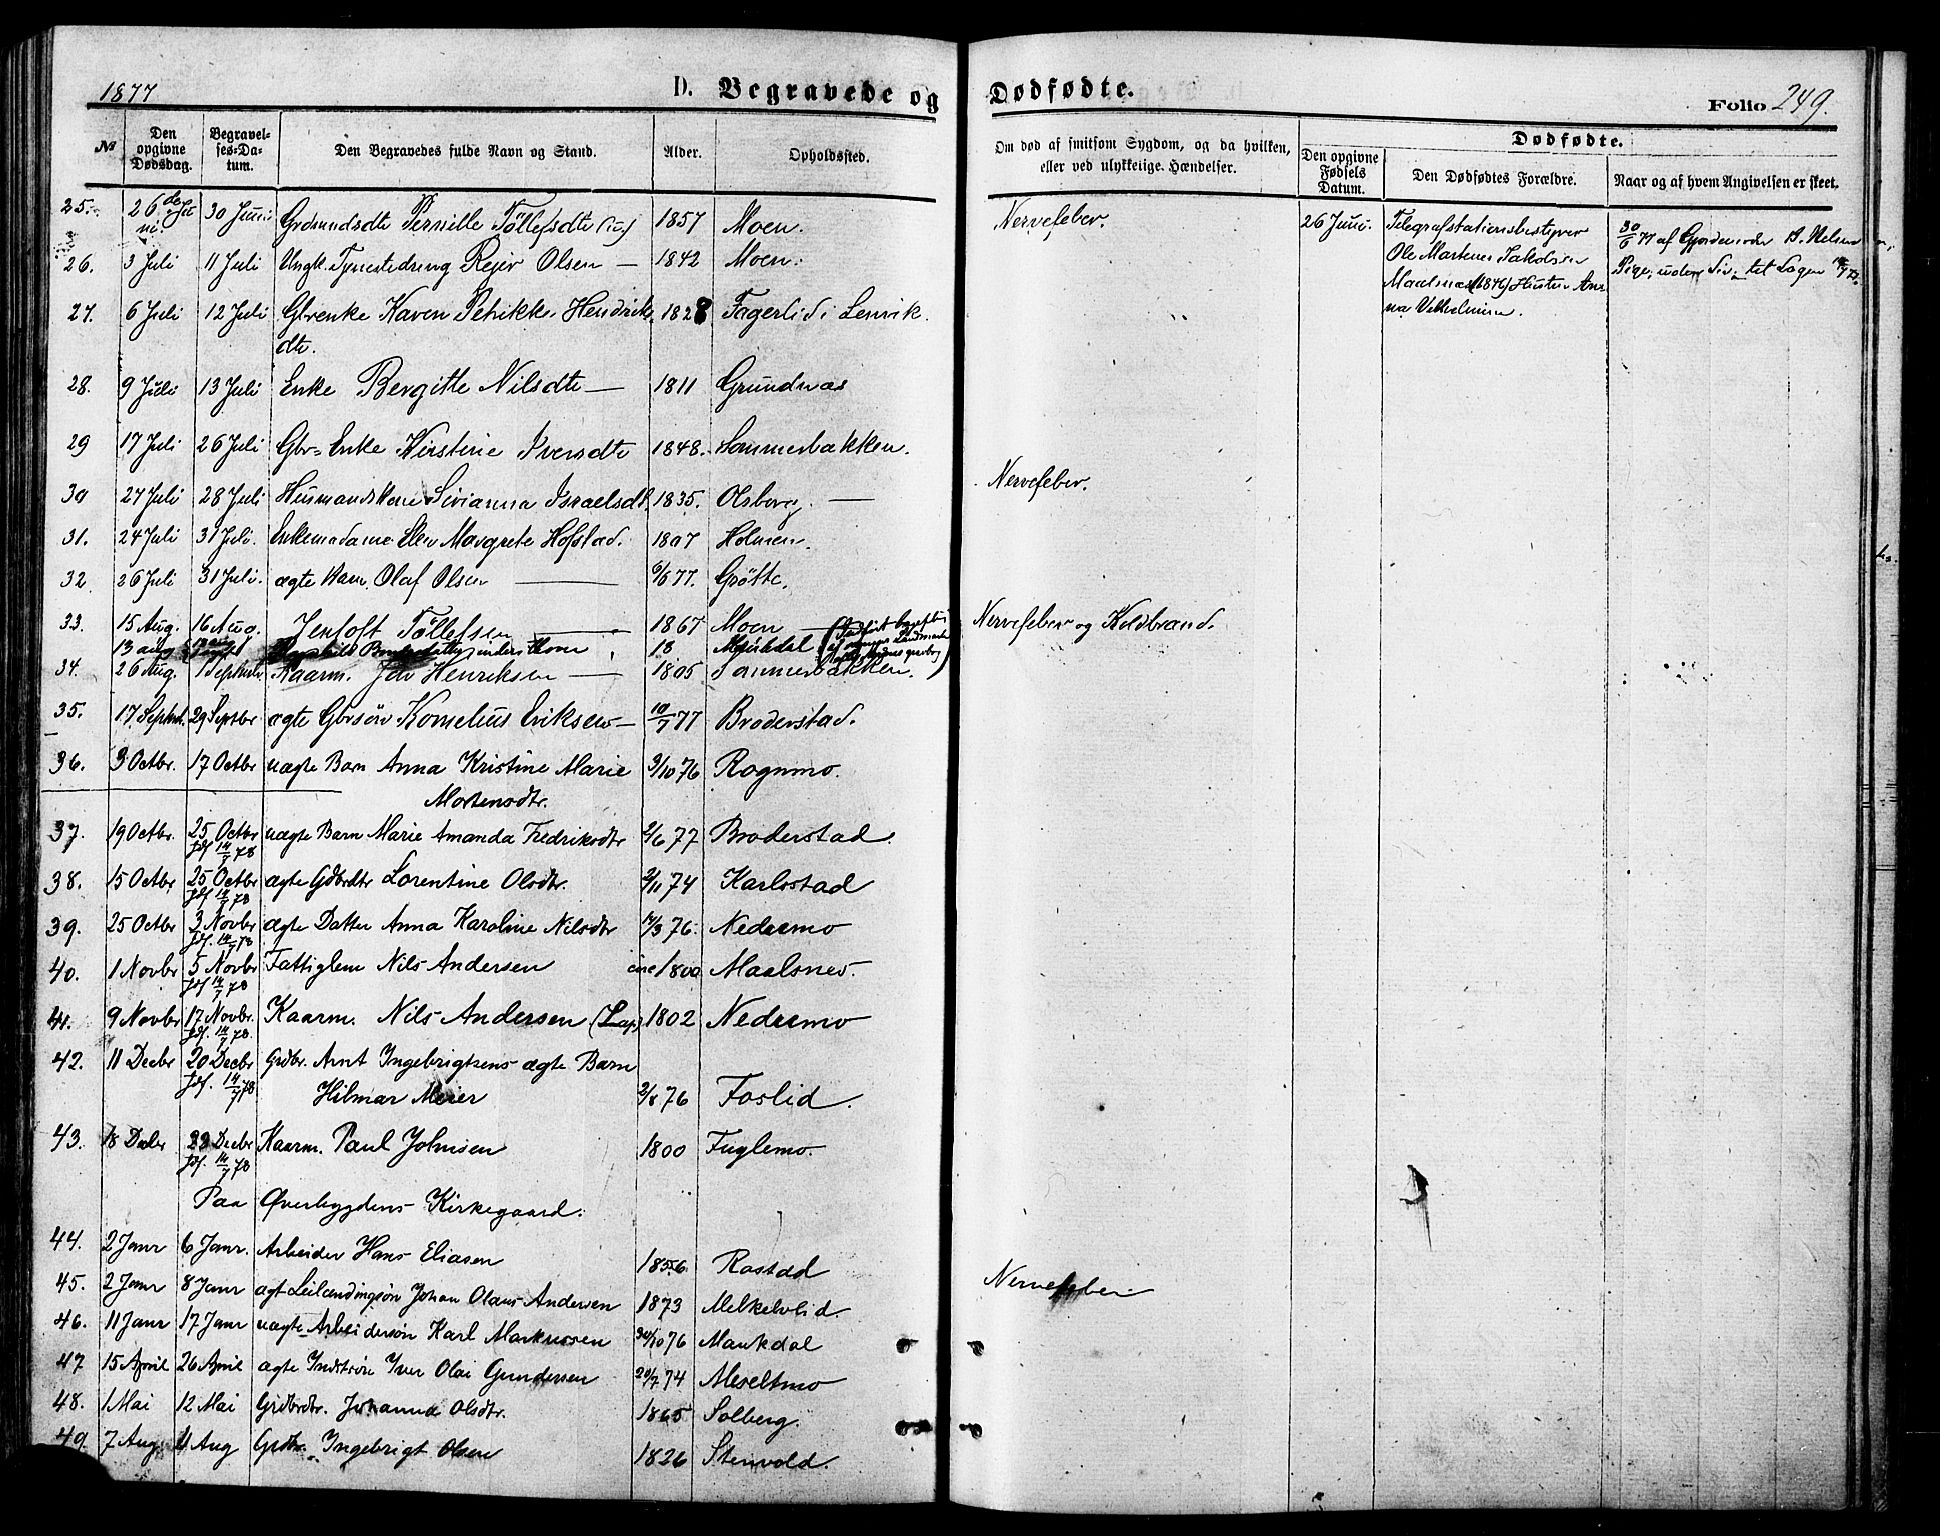 1877
D. Begravede og Dødfødte.
Folio 249.
№
Den opgivne Dødsdag.
Begravelses-Datum.
Den Begravedes fulde Navn og Stand.
Alder.
Opholdssted.
Om død af smitsom Sygdom, og da hvilken, eller ved ulykkelige Hændelser.
Dødfødte.
Den opgivne Fødsels Datum.
Den Dødfødtes Forældre.
Naar og af hvem Angivelsen er skeet.
25. 26de Juni. 30 Juni Pernille Töllefsdtr 1857 Moen. Nervefeber.
26 Juni. Telegrafstationsbestyrer
Ole Martenes Jakobsen
Maalsnes (1846) Hustru Anna
30/6 77 af B. Nelsen
Pige, uden Liv
26. 3 Juli 11 Juli Ungk. Olsen — 1842 Moen.
27. 6 Juli 12 Juli Gbrenke Karen 1828 Fagerlid i Lenvik.
dtr.
28. 9 Juli 13 Juli Enke Bergitte Nilsdtr — 1811 Grundnæs
29 17 Juli 26 Juli Gbr-Enke Kirstine Iversdtr 1848. Sommerbakken.
30 27 Juli 28 Juli Husmandskone Sivianna Israelsdt. 1835. Olsborg. — Nervefeber.
31. 24 Juli 31 Juli. Enkemadame Elen Margrete Hofstad. 1807 Holmen.
32 26 Juli 31 Juli. ægte Barn Olaf Olsen — 6/6 77. Grötte.
33. 15 Aug. 16 Aug. Jentoft Töllefsen — 1867 Moen Nervefeber og Koldbrand.
13 aug 18
34. 26 Aug. 1 Septbr Kaarm. Henriksen — 1805 Sommerbakken.
35. 17 Septbr. 29 Septbr ægte Gbrsøn Kornelius Eriksen — 10/7 77 Broderstad.
36. 3 Octbr. 17 Octbr uægte Barn Anna Kristine Marie 3/10 76 Rognmo.
Mortensdtr.
37. 19 Octbr. 25 Octbr uægte Barn Marie Amanda Fredriksdtr 2/6 77 Broderstad.
14/7 78
38. 15 Octbr 25 Octbr ægte Gdbrdtr Lorentine Olsdtr. 2/11 74 Karlsstad
14/7 78
39. 25 Octbr 3 Novbr ægte Datter Anna Karoline Nilsdtr 14/3 76. Nedremo
14/7 78
40. 1 Novbr 5 Novbr Fattiglem Nils Andersen circ 1800 Maalsnes.
14/7 78
41. 9 Novbr 17 Novbr. Kaarm. Nils Andersen (Lap) 1802 Nedremo
14/7 78.
42. 11 Decbr 20 Decbr Grdbr. Arnt Ingebrigtsens ægte Barn
14/7 78 Hilmar Meier 2/8 76 Foslid.
43. 18 Decbr 22 Decbr Kaarm. Paul Johnsen 1800 Fuglemo.
14/7 78
Paa Øverbygdens Kirkegaard:
44. 2 Janr 6 Janr. Arbeider Hans Eliasen 1856. Rostad
45. 2 Janr 8 Janr ægt Leilændingsøn Johan Olaus Andersen 1873 Melkelvlid. Nervefeber.
46. 11 Janr 17 Janr uægte Arbeidersøn Karl Markussen 30/10 76 Maukdal
47 15 April 26 April ægte Indstsøn Iver Olai Gundersen 20/7 74 Meseltmo
48. 1 Mai 12 Mai Grdbrdtr. Johanna Olsdtr. 1865 Solberg.
49. 7 Aug. 11 Aug Grdbr. Ingebrigt Olsen 1826 Stenvold.